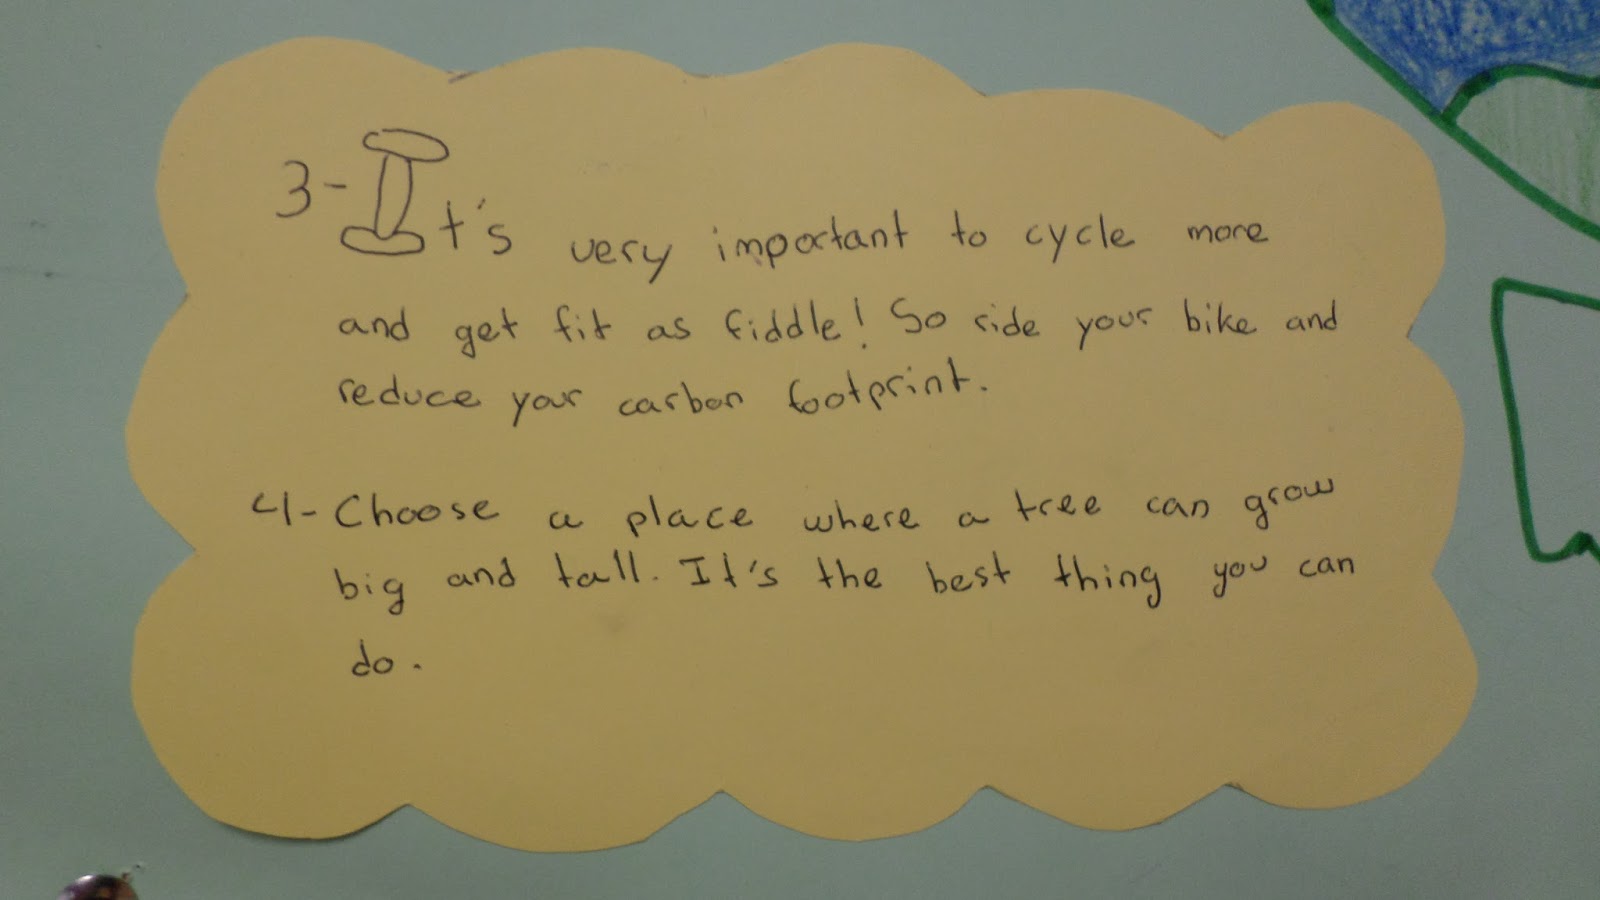 3- It's very important to cycle more
and get fit as fiddle! So ride your bike and
reduce your carbon footprint.
4- Choose a place where a tree can grow
big and tall. It's the best thing you can
do.